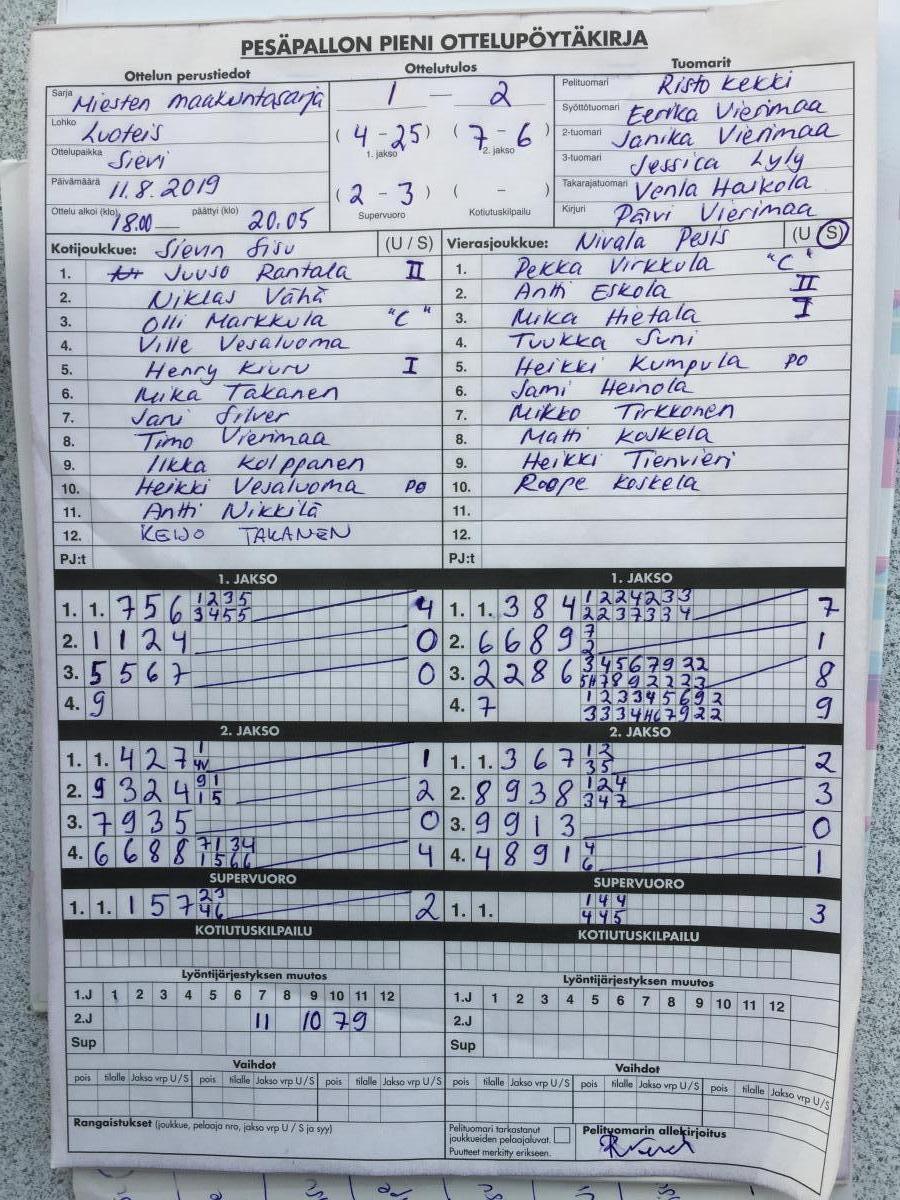 PESÄPALLON PIENI OTTELUPÖYTÄKIRJA
Ottelun perustiedot
Sarja Miesten maakuntasarja
Lohko Luoteis
Ottelupaikka Sievi
Päivämäärä 11.8.2019
Ottelu alkoi (klo) 18.00 päättyi (klo) 20.05
Ottelutulos
1 – 2
( 4 - 25 ) ( 7 - 6 )
1. jakso 2. jakso
( 2 - 3 ) ( - )
Supervuoro Kotiutuskilpailu
Tuomarit
Pelituomari Risto Kekki
Syöttötuomari Eerika Vierimaa
2-tuomari Janika Vierimaa
3-tuomari Jessica Lyly
Takarajatuomari Venla Haikola
Kirjuri Päivi Vierimaa
Kotijoukkue: Sievin Sisu (U / S)
1. Juuso Rantala II
2. Niklas Vähä
3. Olli Markkula "C"
4. Ville Vesaluoma
5. Henry Kiuru I
6. Mika Takanen
7. Jani Silver
8. Timo Vierimaa
9. Ilkka Kolppanen
10. Heikki Vesaluoma PO
11. Antti Nikkilä
12. KEIJO TAKANEN
PJ:t
Vierasjoukkue: Nivala Pesis (U S)
1. Pekka Virkkula "C"
2. Antti Eskola II
3. Mika Hietala I
4. Tuukka Suni
5. Heikki Kumpula PO
6. Jami Heinola
7. Mikko Tirkkonen
8. Matti Koskela
9. Heikki Tienvieri
10. Roope Koskela
11.
12.
1. JAKSO
1. 1. 7 5 6 1 2 3 5 4
3 4 5 5
2. 1 1 2 4 0
3. 5 5 6 7 0
4. 9
1. JAKSO
1. 1. 3 8 4 1 2 2 4 2 3 3 7
2 2 3 7 3 3 4
2. 6 6 8 9 7 1
2
3. 2 2 8 6 3 4 5 6 7 9 2 2 8
4. 7 1 2 3 3 4 5 6 9 2 9
2. JAKSO
1. 1. 4 2 7 1 1
2. 9 3 2 4 9 1 2
1 5
3. 7 9 3 5 0
4. 6 6 8 8 7 1 3 4 4
1 5 6 6
2. JAKSO
1. 1. 3 6 7 1 2 2
3 5
2. 8 9 3 8 1 2 4 3
3 4 7
3. 9 9 1 3 0
4. 4 8 9 1 4 1
6
SUPERVUORO
1. 1. 1 5 7 2 3 2
4 6
SUPERVUORO
1. 1. 1 4 4 3
4 4 5
KOTIUTUSKILPAILU
KOTIUTUSKILPAILU
Lyöntijärjestyksen muutos
1.J 1 2 3 4 5 6 7 8 9 10 11 12
2.J 11 10 7 9
Sup
Lyöntijärjestyksen muutos
1.J 1 2 3 4 5 6 7 8 9 10 11 12
2.J
Sup
Vaihdot
pois tilalle Jakso vrp U / S pois tilalle Jakso vrp U / S pois tilalle Jakso vrp U / S
Vaihdot
pois tilalle Jakso vrp U / S pois tilalle Jakso vrp U / S pois tilalle Jakso vrp U / S
Rangaistukset (joukkue, pelaaja nro, jakso vrp U / S ja syy)
Pelituomari tarkastanut
joukkueiden pelaajaluvat.
Puutteet merkitty erikseen.
Pelituomarin allekirjoitus